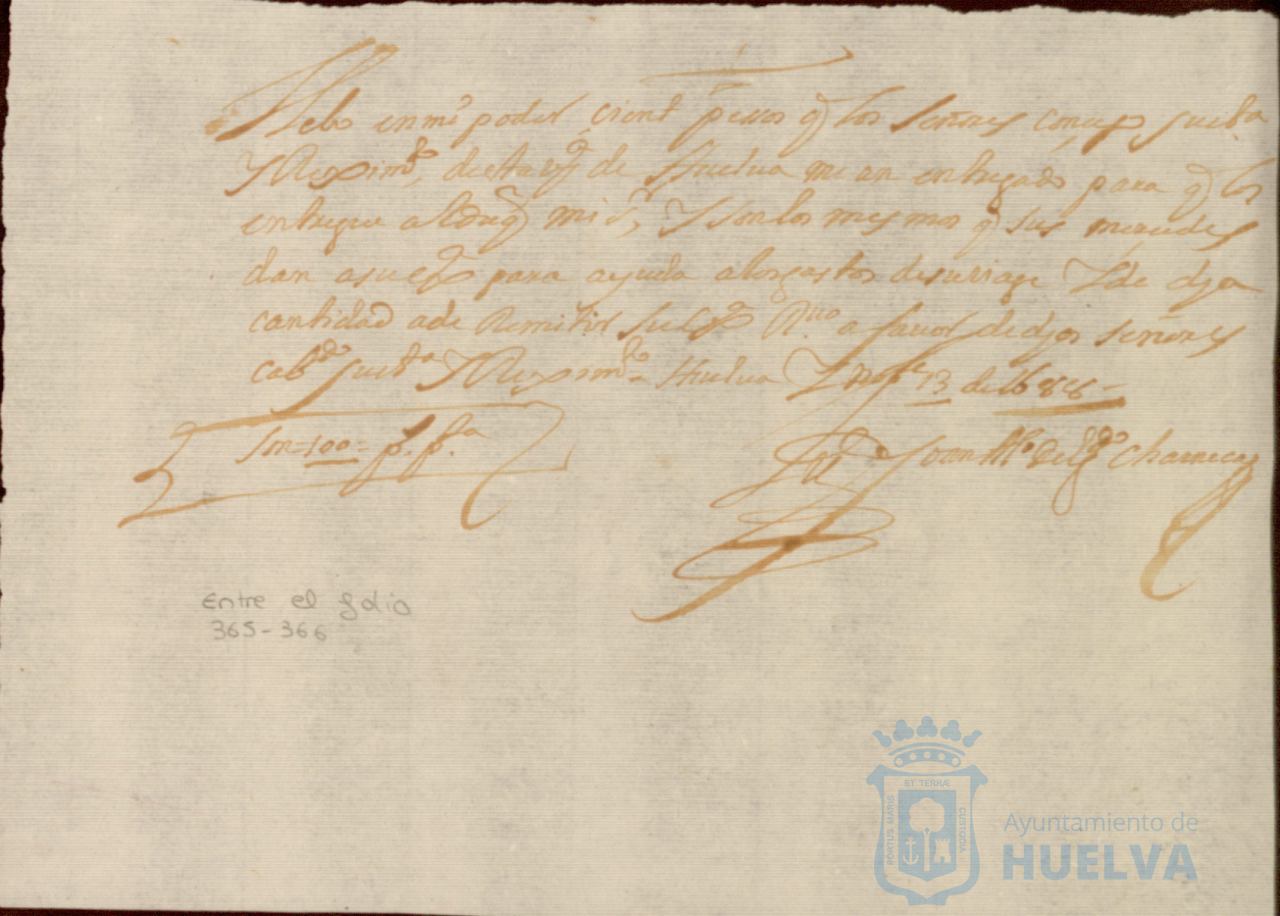 llebo en mi poder cient pessos q los Señores Concejo Just.a
Y Reximto, desta vª de Huelua me an entregado para q los
entregue al Duq mi Sr, Y son los mesmos q sus mercedes
dan a su exª para ayuda a los gastos de su viage Y de dha
cantidad a de Remitir su exª Ruo a fauor de dhos señores
cabdo Justa Y Reximto. Huelua Y 13 de 1688
Son=100=p.s pta
Joan de Chamica
Entre el folio
365-366
PORTUS MARIS
ET TERRÆ
CUSTODIA
Ayuntamiento de
HUELVA